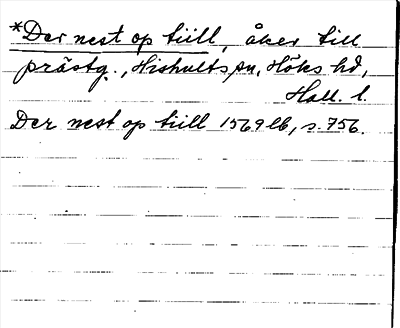 *Der nest op tiill, åker till
prästg., Hishults sn, Höks hd,
Hall. l.
Der nest op tiill 1569 LB, s. 756.